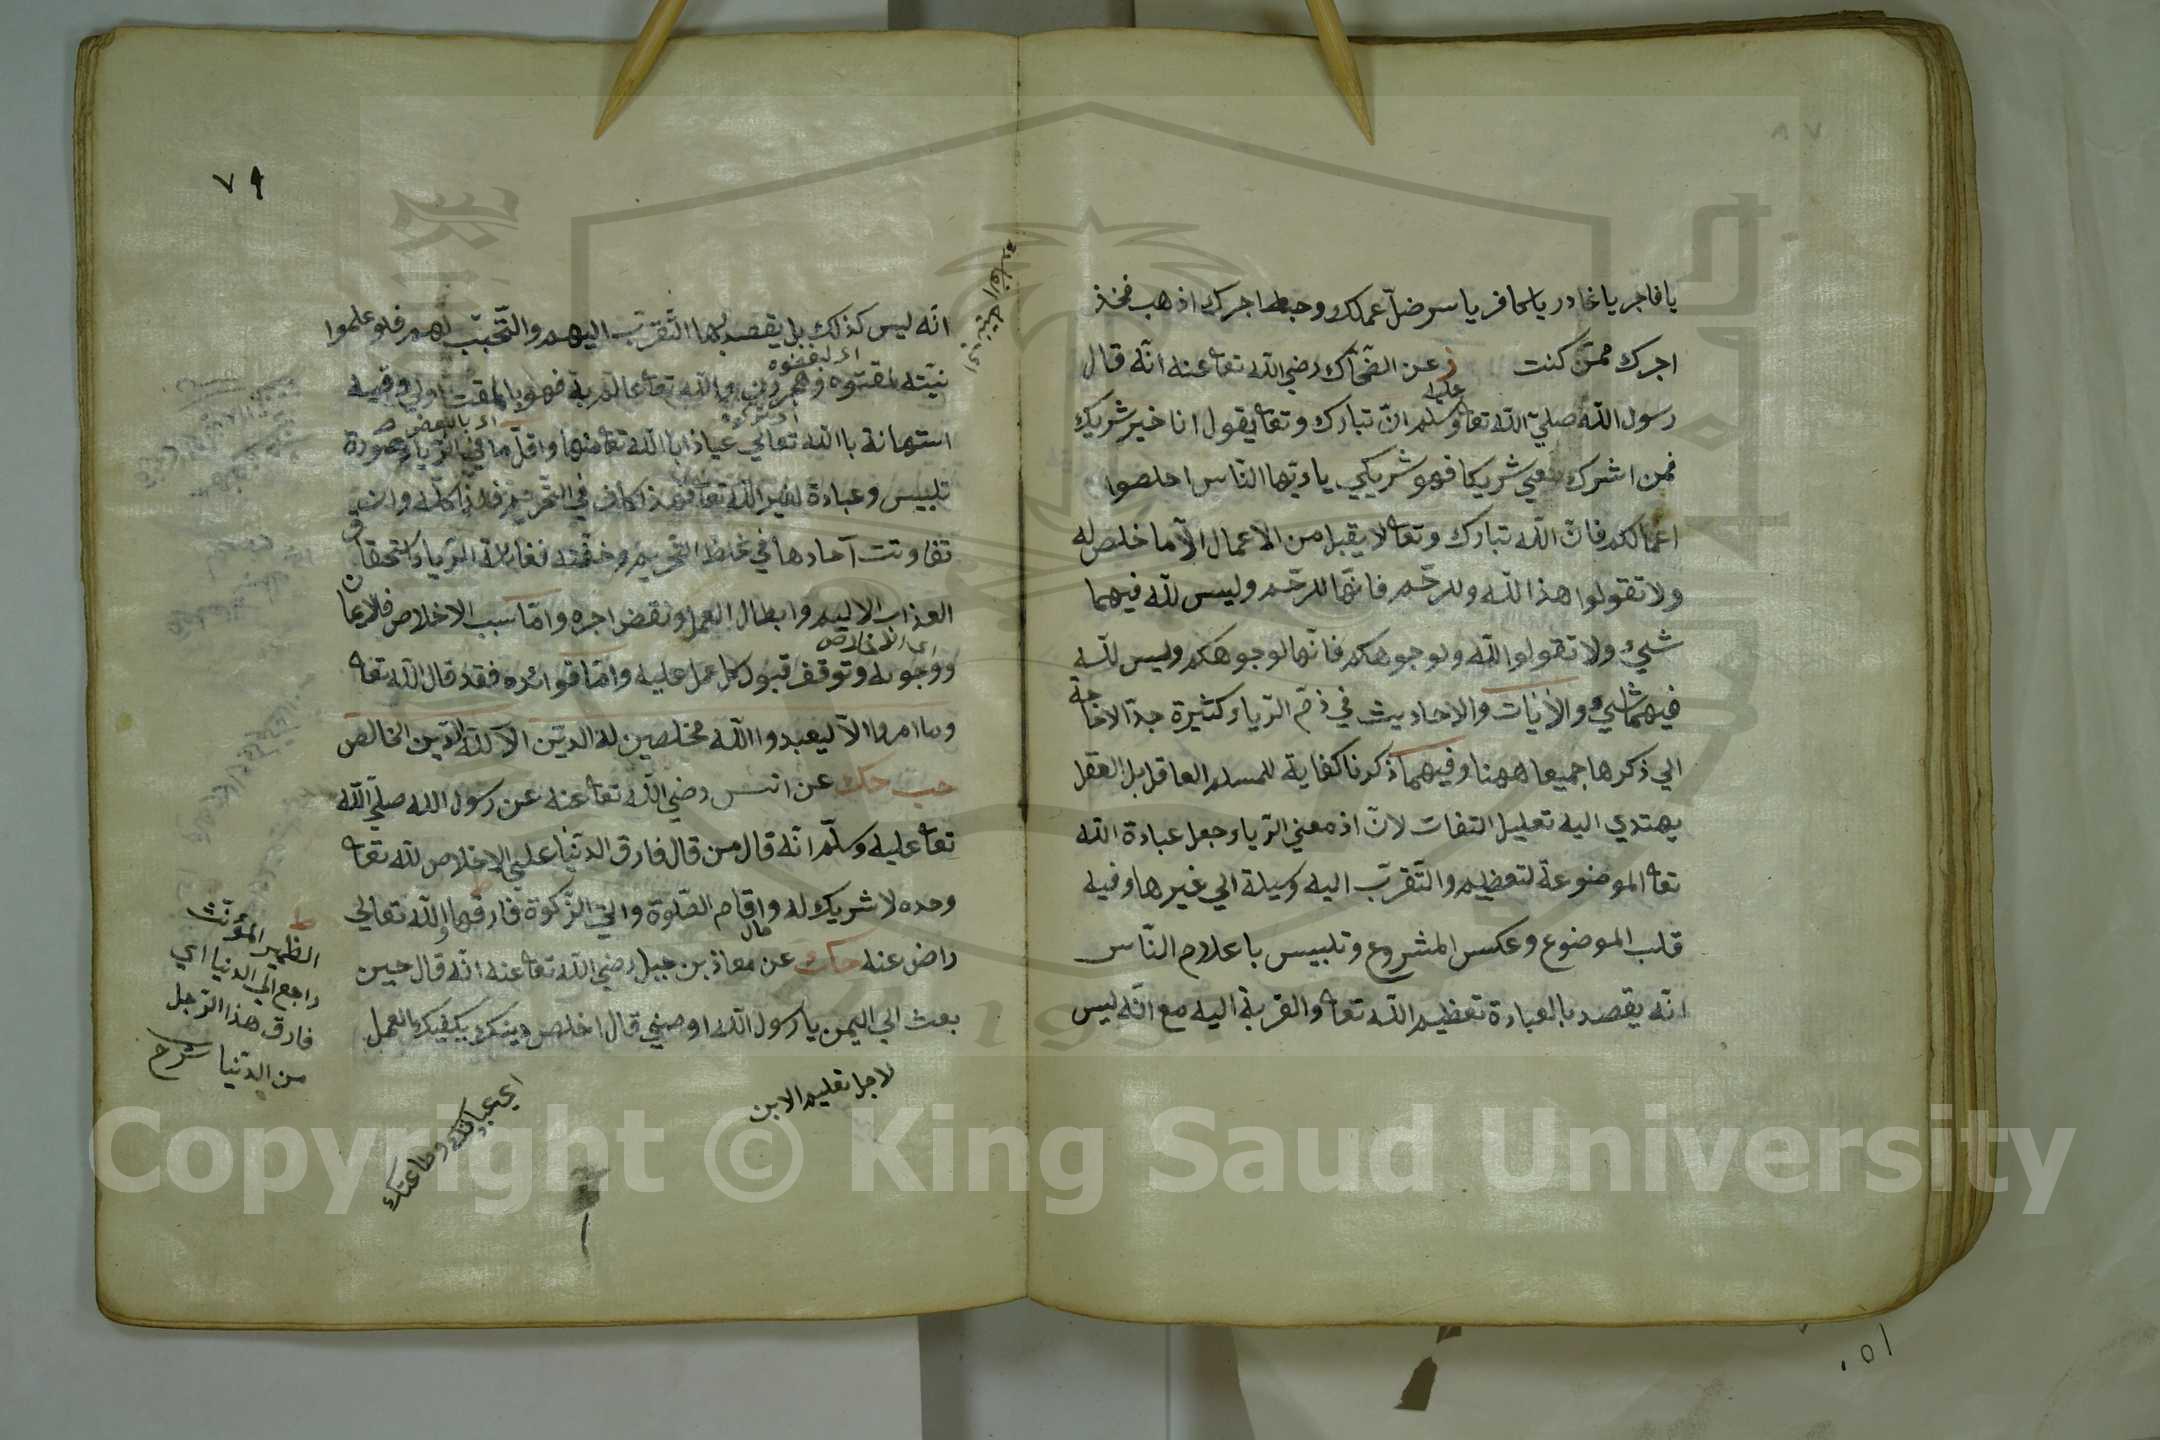 يا فاجر يا غادر يا كافر يا خاسر ضلّ عملك وحبط اجرك اذهب فخذ
اجرك ممّن كنت ز عن الضّحّاك رضي اللّه تعا عنه انّه قال
عليه
رسول اللّه صلّي اللّه تعا وسلم انّ تبارك وتعا يقول انا خير شريك
فمن اشرك معي شريكا فهو شريكي يا ايّها النّاس اخلصوا
اعمالكم فانّ اللّه تبارك وتعا لا يقبل من الاعمال الّا ما خلص له
ولا تقولوا هذا للّه وللرّحم فانّها للرّحم وليس للّه فيهما
شئ ولا تقولوا للّه ولوجوهكم فانّها لوجوهكم وليس للّه
فيهما شئ والآيات والاحاديث في ذمّ الرّياء كثيرة جدّا لا حاجة
الي ذكرها جميعا ههنا وفيهما ذكرنا كفاية للمسلم العاقل بل العقل
يهتدي اليه تعليل التفات لانّ اذ معني الرّياء جعل عبادة اللّه
تعا الموضوعة لتعظيم والتّقرّب اليه وسيلة الي غيرها وفيه
قلب الموضوع وعكس المشروع وتلبيس باعلام النّاس
انّه يقصد بالعبادة تعظيم اللّه تعا والقربة اليه مع انّه ليس
٧٩
انّه ليس كذلك بل يقصد بها التّقرّب اليهم والتّحبّب لهم فلو علموا
اي لبغضوه
نيّته لمقتوه وهجروه واللّه تعا عالم به فهو بالمقت اولي وفيه
اي تركوه
اي بالبغض
استهانة باللّه تعالي عياذا باللّه تعا منها واقلّ ما في الرّياء صورة
تلبيس وعبادة لغير اللّه تعا فهذا كاف في التّحريم فلذا كلّه وان
تفاوتت آحادها في غلظ التحريم وخفّته فغائلة الرّياء استحقاق
العذاب الاليم وابطال العمل ونقض اجره وامّا سبب الاخلاص فالايمان
اي الاخلاص
ووجوبه وتوقف قبول كل عمل عليه وامّا فوائده فقد قال اللّه تعا
وما امروا الّا ليعبدوا اللّه مخلصين له الدّين الا للّه الدّين الخالص
حب حك عن انس رضي اللّه تعا عنه عن رسول اللّه صلّي اللّه
تعا عليه وسلّم انّه قال من قال فارق الدّنيا علي الاخلاص للّه تعا
وحده لا شريك له واقام الصّلوة واتي الزّكوة فارقها واللّه تعالي
راض عنه حك عن معاذ بن جبل رضي اللّه تعا عنه انّه قال حين
بعث الي اليمن يا رسول اللّه اوصني قال اخلص دينك يكفيك العمل
لاجل تعليم الابن
اي عبادتك وطاعتك
ط
الظمير المؤنّث
راجع الي الدنيا اي
فارق هذا الرّجل
من الدّنيا شرح
Copyright © King Saud University